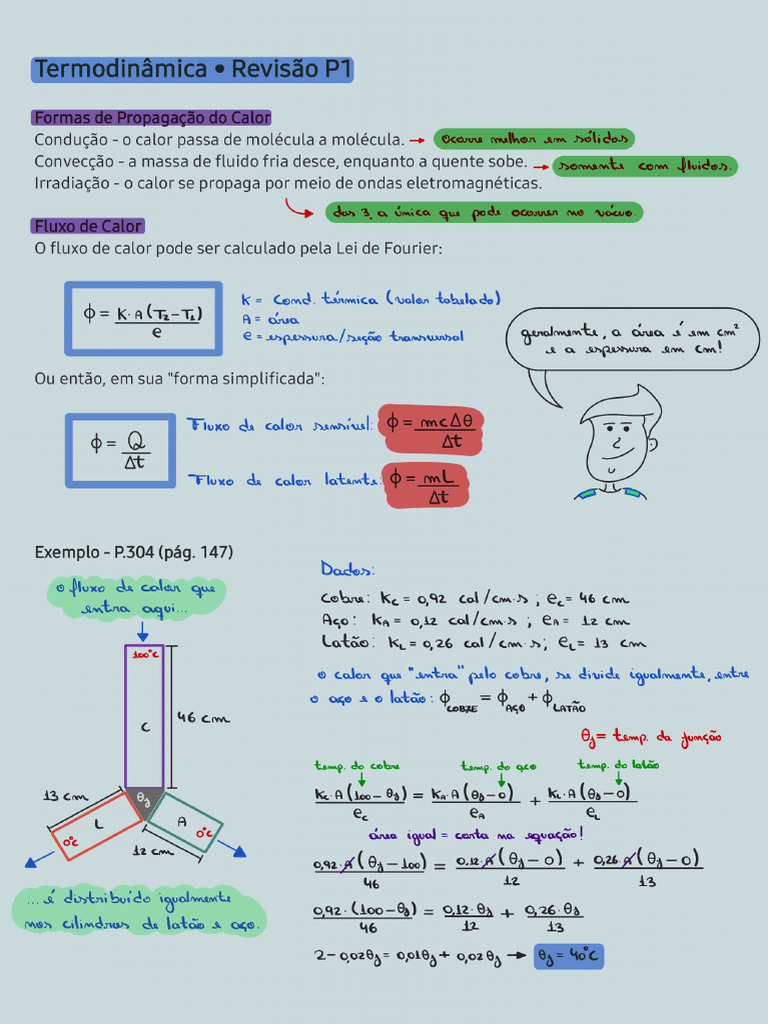 Termodinâmica • Revisão P1
Formas de Propagação do Calor
Condução - o calor passa de molécula a molécula. → ocorre melhor em sólidos
Convecção - a massa de fluido fria desce, enquanto a quente sobe. → somente com fluidos.
Irradiação - o calor se propaga por meio de ondas eletromagnéticas.
das 3, a única que pode ocorrer no vácuo.
Fluxo de Calor
O fluxo de calor pode ser calculado pela Lei de Fourier:
ϕ = K·A(T₂-T₁)/e
K = Cond. térmica (valor tabelado)
A = área
e = espessura/seção transversal
geralmente, a área é em cm²
e a espessura em cm!
Ou então, em sua "forma simplificada":
ϕ = Q/Δt
Fluxo de calor sensível: ϕ = mcΔθ/Δt
Fluxo de calor latente: ϕ = mL/Δt
Exemplo - P.304 (pág. 147)
o fluxo de calor que
entra aqui...
100°C
C
46 cm
13 cm
θj
L
A
0°C
0°C
12 cm
...é distribuído igualmente
nos cilindros de latão e aço.
Dados:
Cobre: Kc = 0,92 cal/cm·s ; ec = 46 cm
Aço: KA = 0,12 cal/cm·s ; eA = 12 cm
Latão: KL = 0,26 cal/cm·s; eL = 13 cm
o calor que "entra" pelo cobre, se divide igualmente, entre
o aço e o latão: ϕCOBRE = ϕAÇO + ϕLATÃO
θj = temp. da junção
temp. do cobre temp. do aço temp. do latão
Kc·A(100-θj)/ec = KA·A(θj-0)/eA + KL·A(θj-0)/eL
área igual = corta na equação!
0,92·A(θj-100)/46 = 0,12·A(θj-0)/12 + 0,26·A(θj-0)/13
0,92·(100-θj)/46 = 0,12·θj/12 + 0,26·θj/13
2-0,02θj = 0,01θj + 0,02θj → θj = 40°C